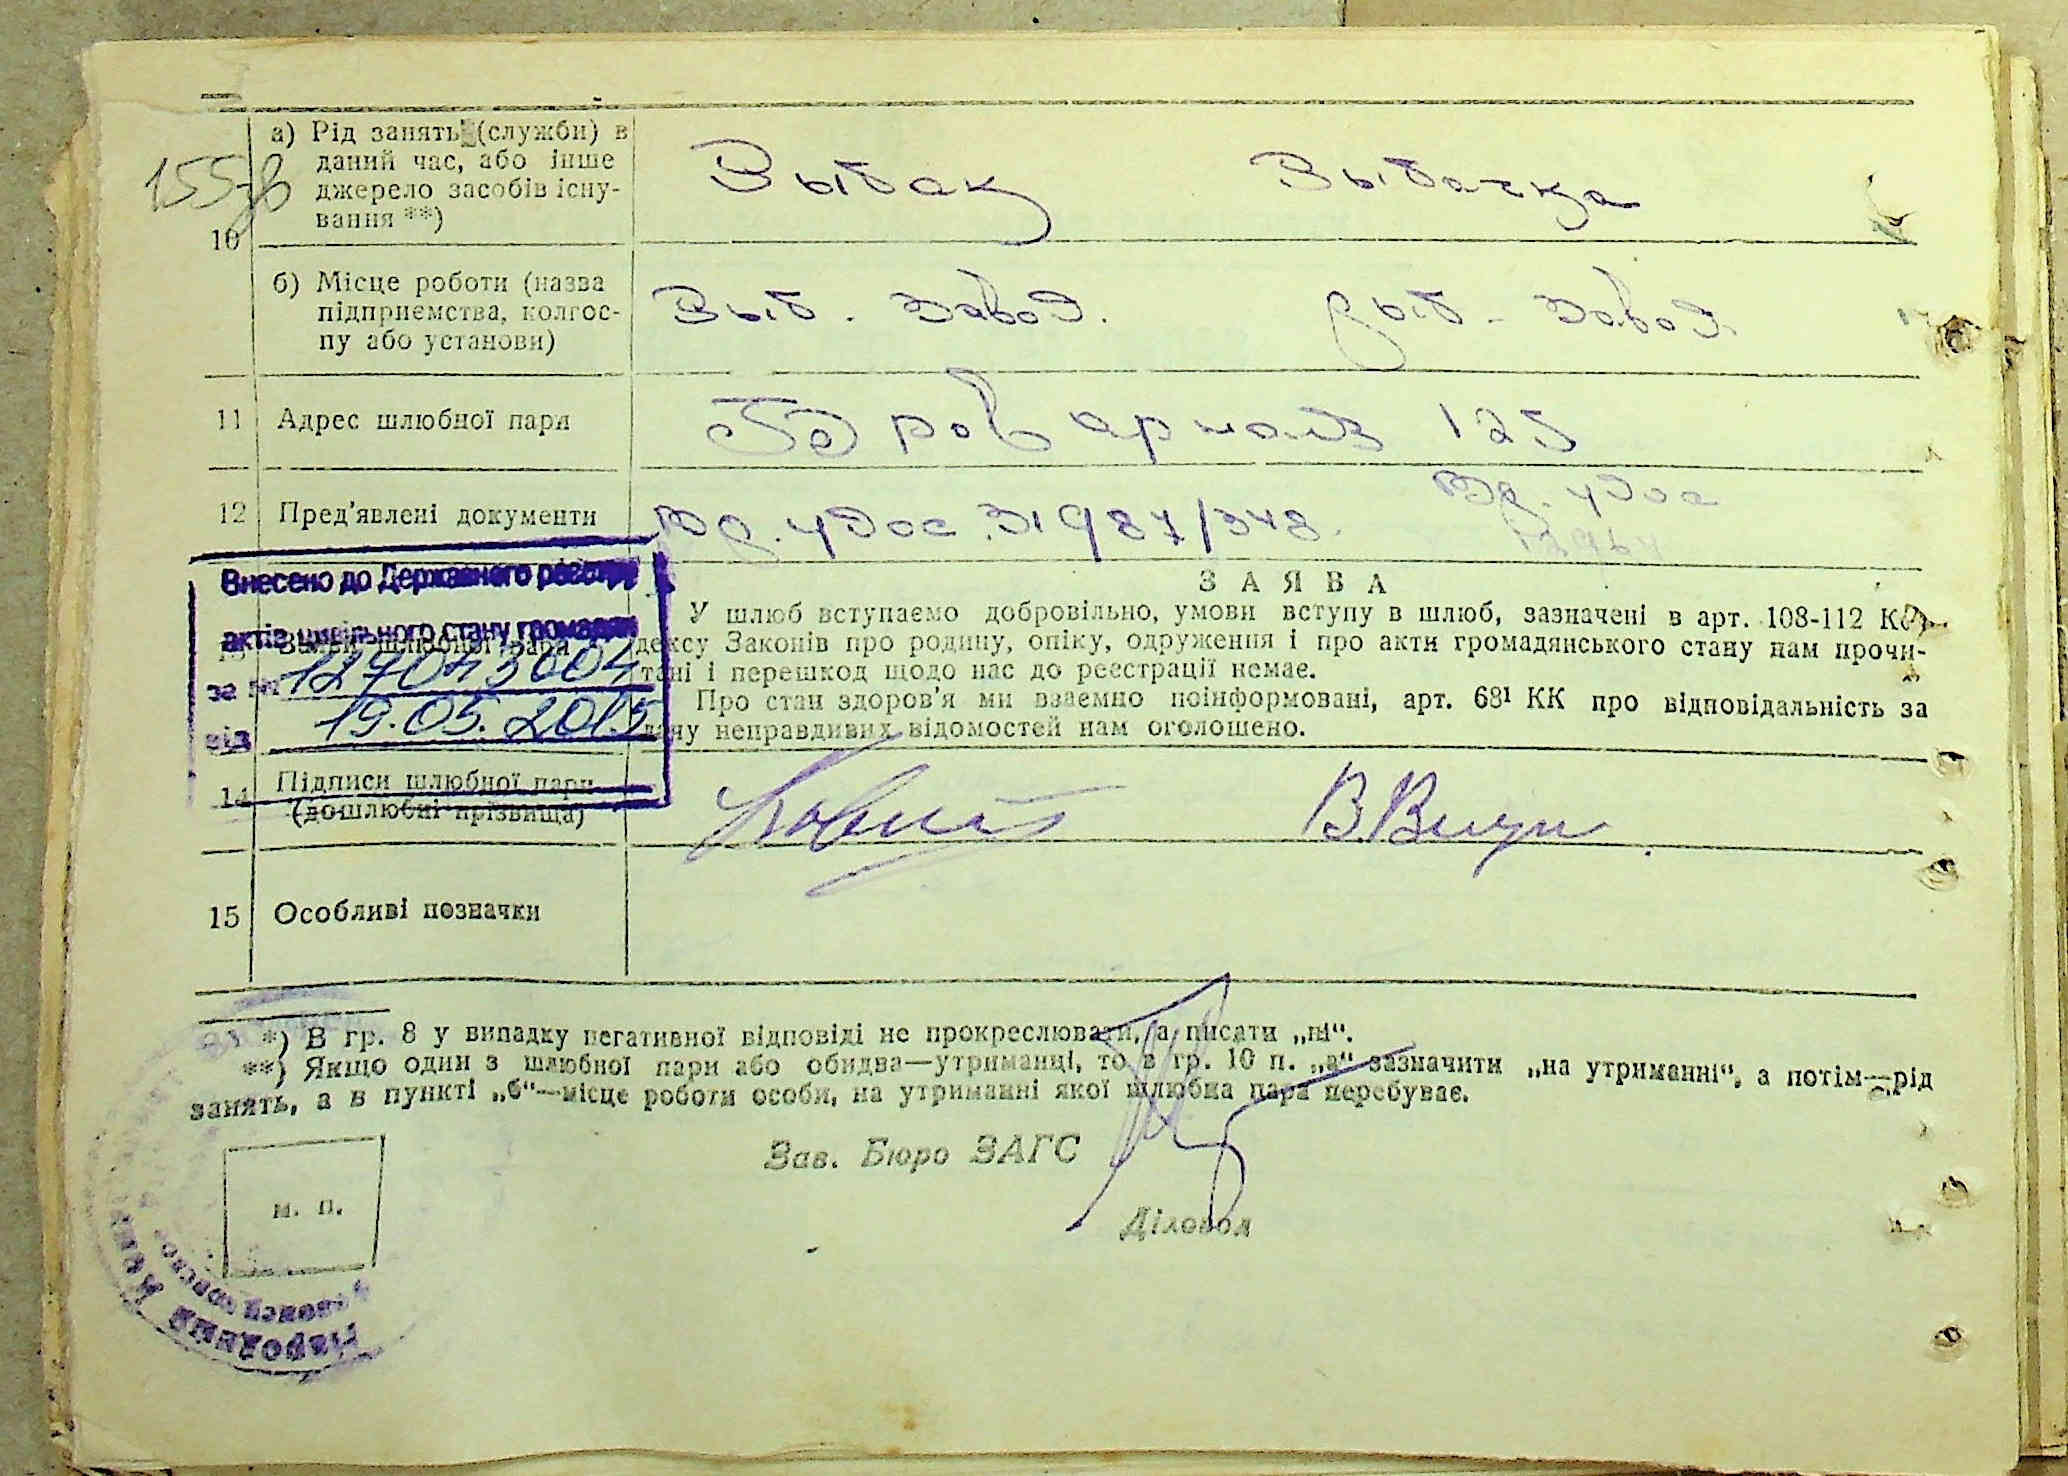 155зв
10 а) Рід занять (служби) в
даний час, або інше
джерело засобів існу-
вання **)
Рыбак Рыбачка
б) Місце роботи (назва
підприємства, колгос-
пу або установи)
Рыб. завод. Рыб. завод.
11 Адрес шлюбної пари
125
12 Пред'явлені документи
удос. 31987/348.
удос
Внесено до Державного реєстру
актів цивільного стану громадян
за № 127043004
від 19.05.2015
13 Заяви шлюбної пари
ЗАЯВА
У шлюб вступаємо добровільно, умови вступу в шлюб, зазначені в арт. 108-112 Ко-
дексу Законів про родину, опіку, одруження і про акти громадянського стану нам прочи-
тані і перешкод щодо нас до реєстрації немає.
Про стан здоров'я ми взаємно поінформовані, арт. 68¹ КК про відповідальність за
дачу неправдивих відомостей нам оголошено.
14 Підписи шлюбної пари
(дошлюбні прізвища)
15 Особливі позначки
*) В гр. 8 у випадку негативної відповіді не прокреслювати, а писати „ні“.
**) Якщо один з шлюбної пари або обидва—утриманці, то в гр. 10 п. „а“ зазначити „на утриманні“, а потім—рід
занять, а в пункті „б“—місце роботи особи, на утриманні якої шлюбна пара перебуває.
Зав. Бюро ЗАГС
м. п.
Діловод
Народний